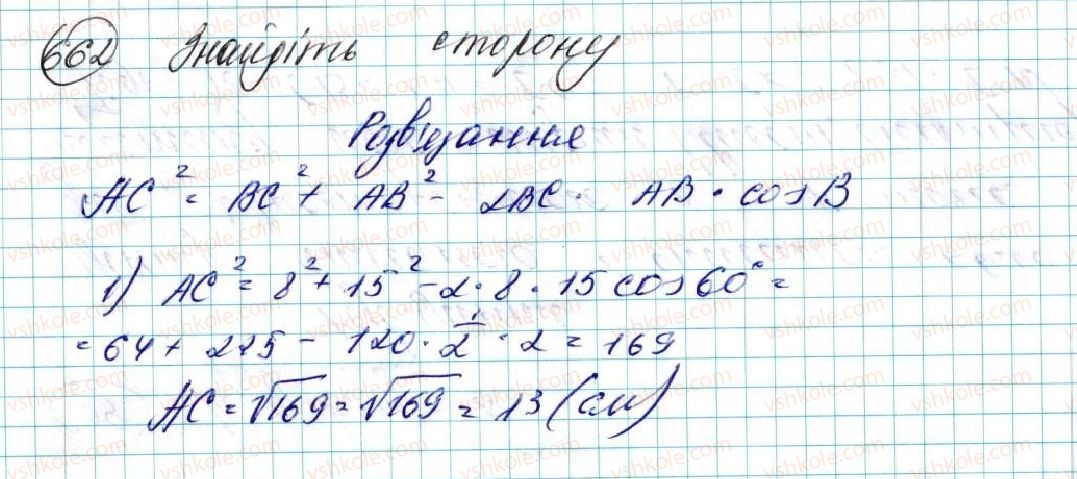 662 Знайдіть сторону
Розв'язання
AC² = BC² + AB² - 2BC · AB · cosB
1) AC² = 8² + 15² - 2 · 8 · 15 cos 60° =
= 64 + 225 - 120 · 1/2 · 2 = 169
AC = √169 = √169 = 13 (см)